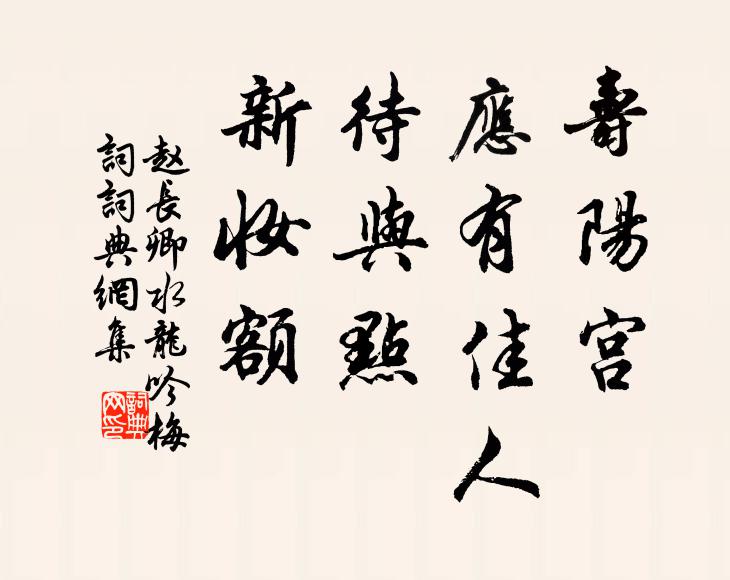 壽陽宮
應有佳人
待與點
新妝額
赵長卿水龍吟梅
詞詞典網集
詞典网印